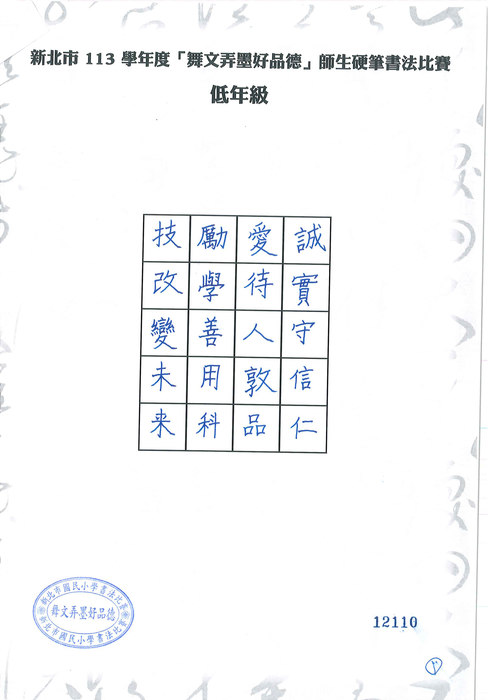 新北市 113 學年度「舞文弄墨好品德」師生硬筆書法比賽
低年級
誠實守信仁
愛待人敦品
勵學善用科
技改變未来
新北市國民小學書法比賽
舞文弄墨好品德
新北市國民小學書法比賽
12110